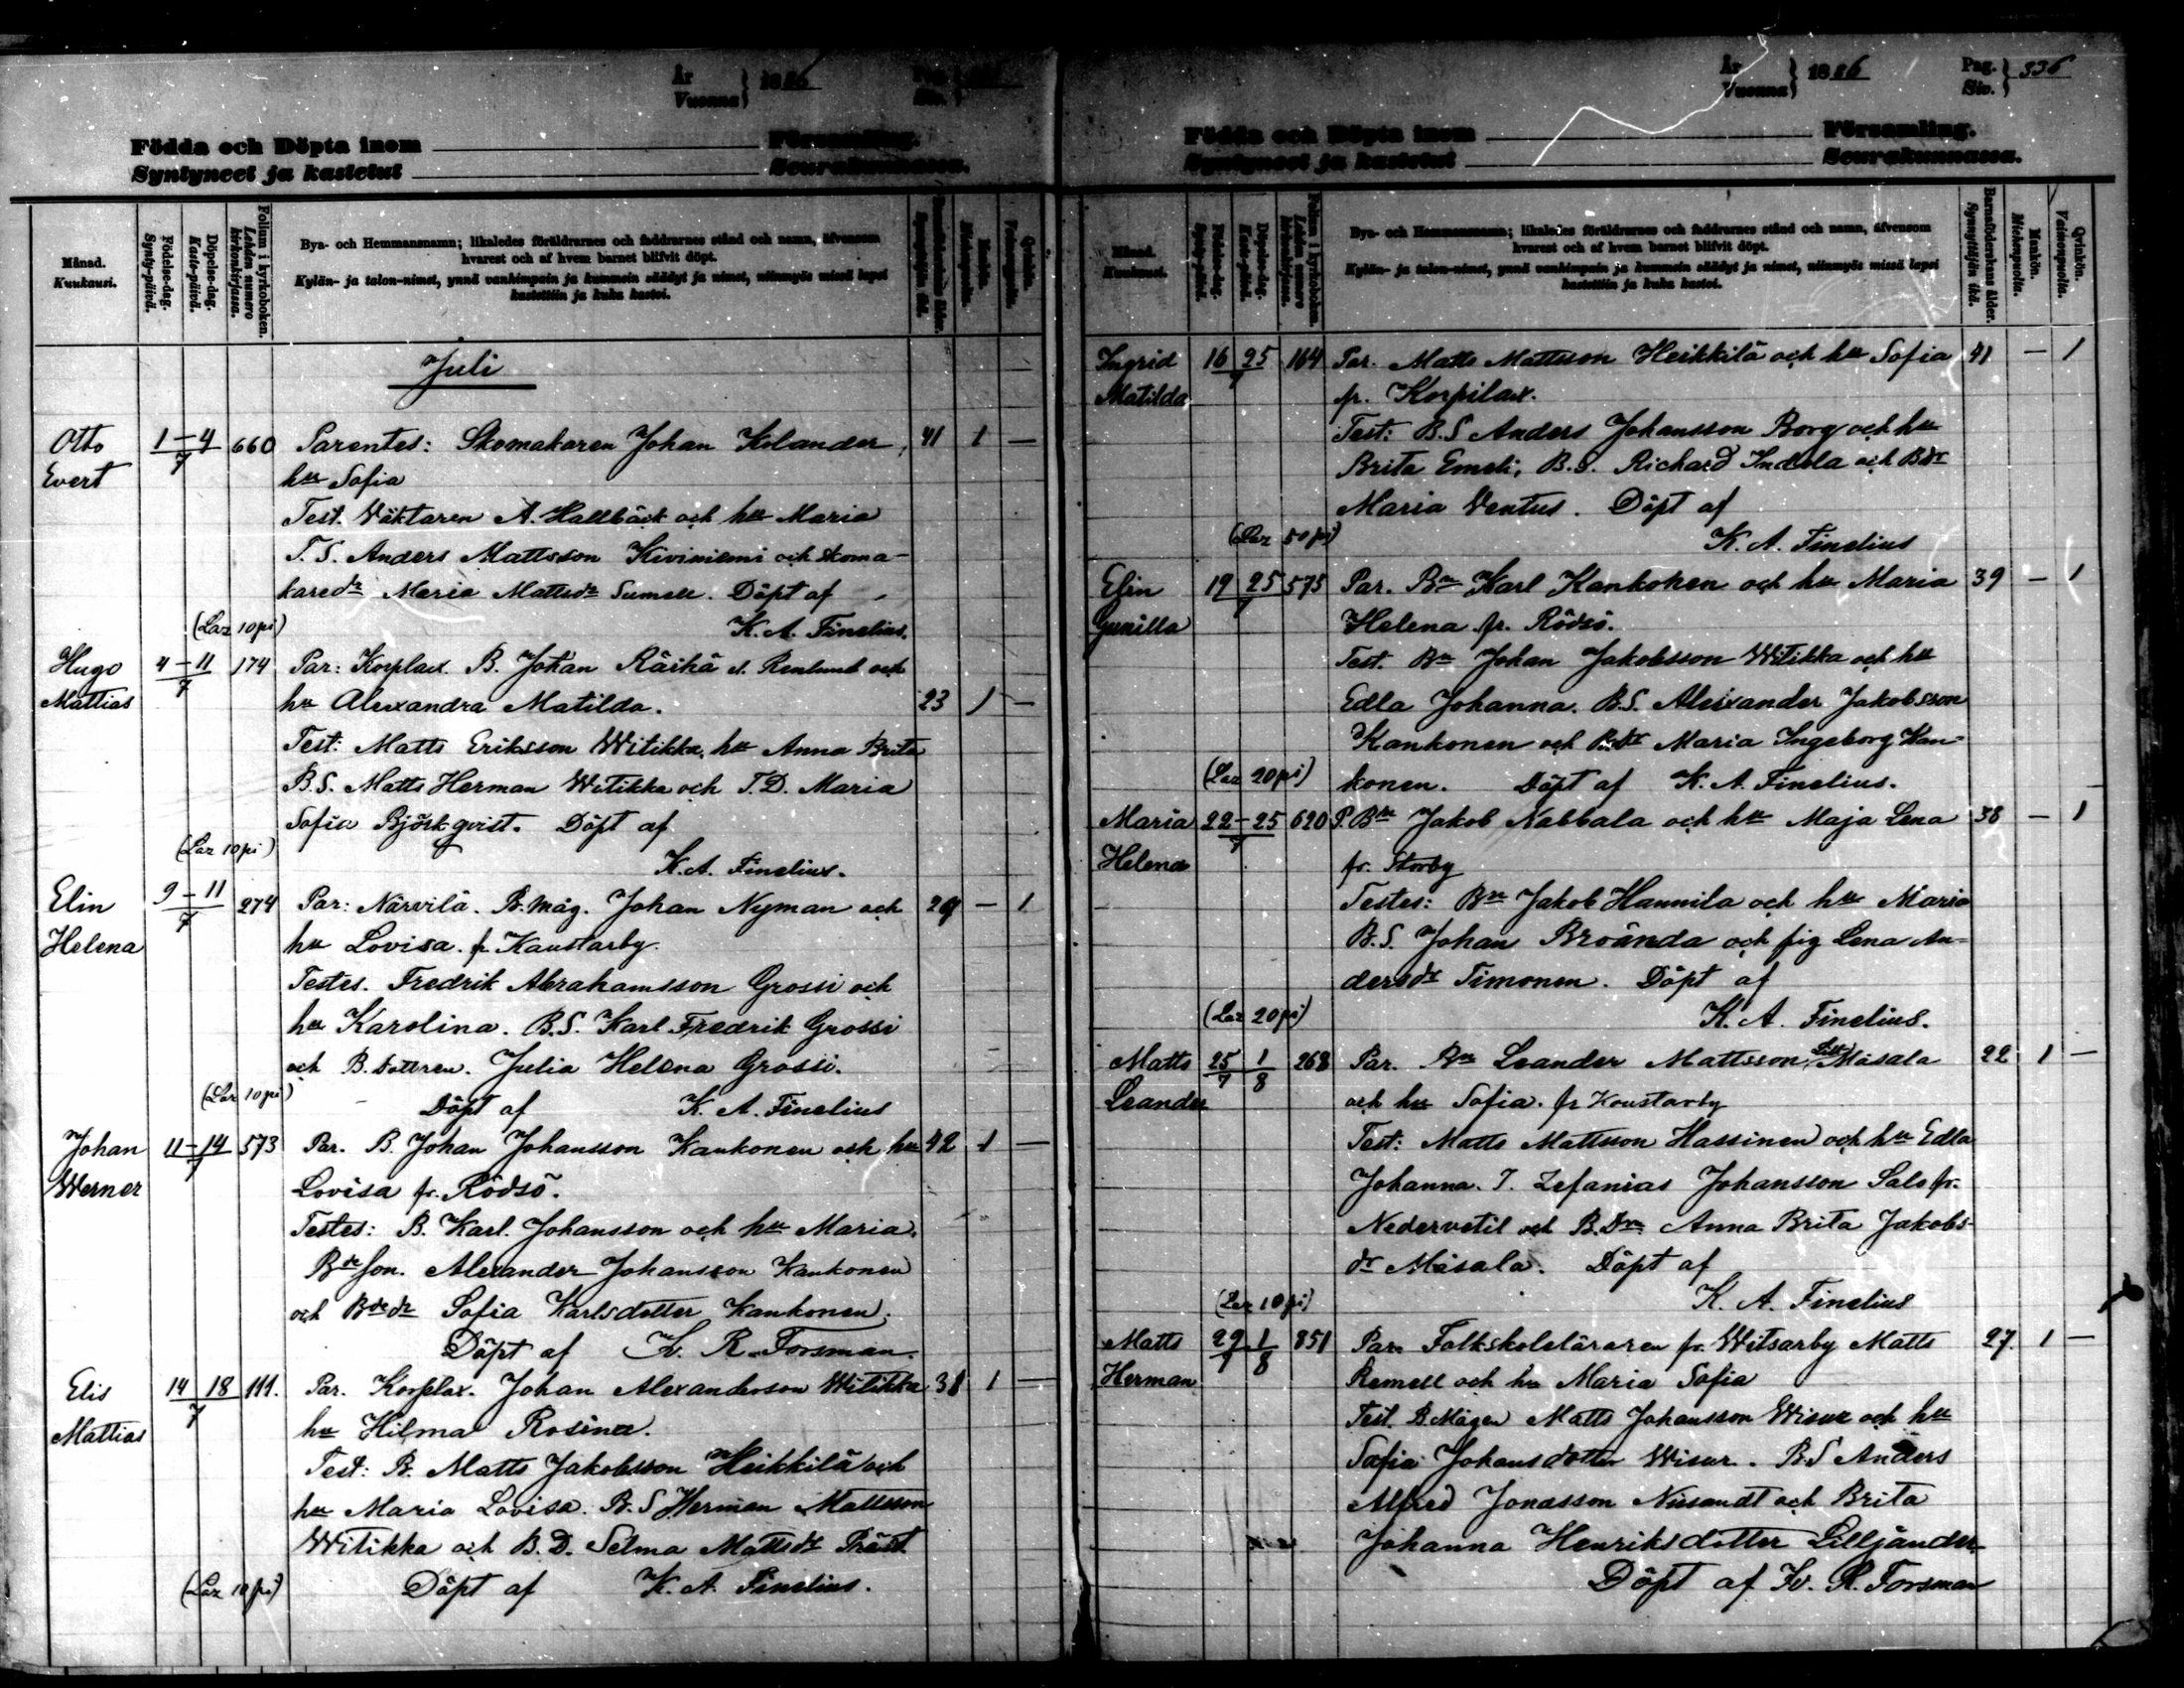 År
Vuonna } 1886
Pag.
Siv. }
Födda och Döpta inom Församling.
Syntyneet ja kastetut Seurakunnassa.
Månad.
Kuukausi.
Födelse-dag.
Synty-päivä.
Döpelse-dag.
Kaste-päivä.
Folium i kyrkoboken.
Lehden numero kirkonkirjassa.
Bya- och Hemmansnamn; likaledes föräldrarnes och faddrarnes stånd och namn, äfvensom
hvarest och af hvem barnet blifvit döpt.
Kylän- ja talon-nimet, ynnä vanhimpain ja kummein säädyt ja nimet, niinmyös missä lapsi
kastettiin ja kuka kastoi.
Barnaföderskans ålder.
Synnyttäjän ikä.
Mankön.
Miehenpuolia.
Qvinkön.
Vaimonpuolia.
Juli
Otto 1-4/7 660 Parentes: Skomakaren Johan Kolander, 41 1 —
Evert hu Sofia
Test. Väktaren A. Hallbäck och hu Maria
T. S. Anders Mattsson Kiviniemi och skoma-
karedr Maria Mattsdr Sumell. Döpt af
(Laz 10 pi) K. A. Finelius.
Hugo 4-11/7 174 Par: Korplax. B. Johan Räihä el. Renlund och
Mattias hu Alexandra Matilda. 23 1 —
Test: Matts Eriksson Witikka, hu Anna Brita
B. S. Matts Herman Witikka och T. D. Maria
Sofia Björkqvist. Döpt af
(Laz 10 pi) K. A. Finelius.
Elin 9-11/7 274 Par: Närvilä. B. måg. Johan Nyman och 29 — 1
Helena hu Lovisa. fr Kaustarby.
Testes. Fredrik Abrahamsson Grossi och
hu Karolina. B. S. Karl Fredrik Grossi
och B. dottren. Julia Helena Grossi.
(Laz 10 pi) Döpt af K. A. Finelius
Johan 11-14/7 573 Par. B. Johan Johansson Kankonen och hu 42 1 —
Werner Lovisa fr. Rödsö.
Testes: B. Karl. Johansson och hu Maria.
Bde son. Alexander Johansson Kankonen
och Bde dr Sofia Karlsdotter Kankonen.
Döpt af K. R. Forsman.
Elis 14 18/7 111. Par. Korplax. Johan Alexandersson Witikka 31 1 —
Mattias hu Hilma Rosina.
Test: B. Matts Jakobsson Heikkilä och
hu Maria Lovisa. B. S Herman Mattsson
Witikka och B. D. Selma Mattsdr Präst.
(Laz 10 pi) Döpt af K. A. Finelius.
År
Vuonna } 1886
Pag.
Siv. } 336
Födda och Döpta inom Församling.
Syntyneet ja kastetut Seurakunnassa.
Månad.
Kuukausi.
Födelse-dag.
Synty-päivä.
Döpelse-dag.
Kaste-päivä.
Folium i kyrkoboken.
Lehden numero kirkonkirjassa.
Bya- och Hemmansnamn; likaledes föräldrarnes och faddrarnes stånd och namn, äfvensom
hvarest och af hvem barnet blifvit döpt.
Kylän- ja talon-nimet, ynnä vanhimpain ja kummein säädyt ja nimet, niinmyös missä lapsi
kastettiin ja kuka kastoi.
Barnaföderskans ålder.
Synnyttäjän ikä.
Mankön.
Miehenpuolia.
Qvinkön.
Vaimonpuolia.
Ingrid 16 25/7 164 Par. Matts Mattsson Heikkilä och hu Sofia 41 — 1
Matilda fr. Korpilax.
Test: B. S Anders Johansson Borg och hu
Brita Emeli, B. S. Richard Indola och Bdr
Maria Ventus. Döpt af
(Laz 50 pi) K. A. Finelius
Elin 19 25/7 575 Par. Bn Karl Kankonen och hu Maria 39 — 1
Gunilla Helena fr. Rödsö.
Test. Bn Johan Jakobsson Witikka och hu
Edla Johanna. B. S. Alexander Jakobsson
Kankonen och B. dr Maria Ingeborg Kan-
(Laz 20 pi) konen. Döpt af K. A. Finelius.
Maria 22-25/7 620 P. Bn Jakob Nabbala och hu Maja Lena 38 — 1
Helena fr. Storby
Testes: Bn Jakob Hannila och hu Maria
B. S. Johan Broända och pig Lena An-
dersdr Timonen. Döpt af
(Laz 20 pi) K. A. Finelius.
Matts 25/7 1/8 268 Par. Bn Leander Mattsson Lill Måsala 22 1 —
Leander och hu Sofia. fr Koustarby
Test: Matts Mattsson Hassinen och hu Edla
Johanna. T. Zefanias Johansson Salo fr.
Nedervetil och B. Dn Anna Brita Jakobs-
dr Måsala. Döpt af
(Laz 10 pi) K. A. Finelius
Matts 29/7 1/8 851 Par. Folkskoleläraren fr. Witsarby Matts 27. 1 —
Herman Remell och hu Maria Sofia
Test. B. Mågen Matts Johansson Wisur och hu
Sofia Johansdotter Wisur. B. S Anders
Alfred Jonasson Nisandt och Brita
Johanna Henriksdotter Lilljander.
Döpt af K. R. Forsman